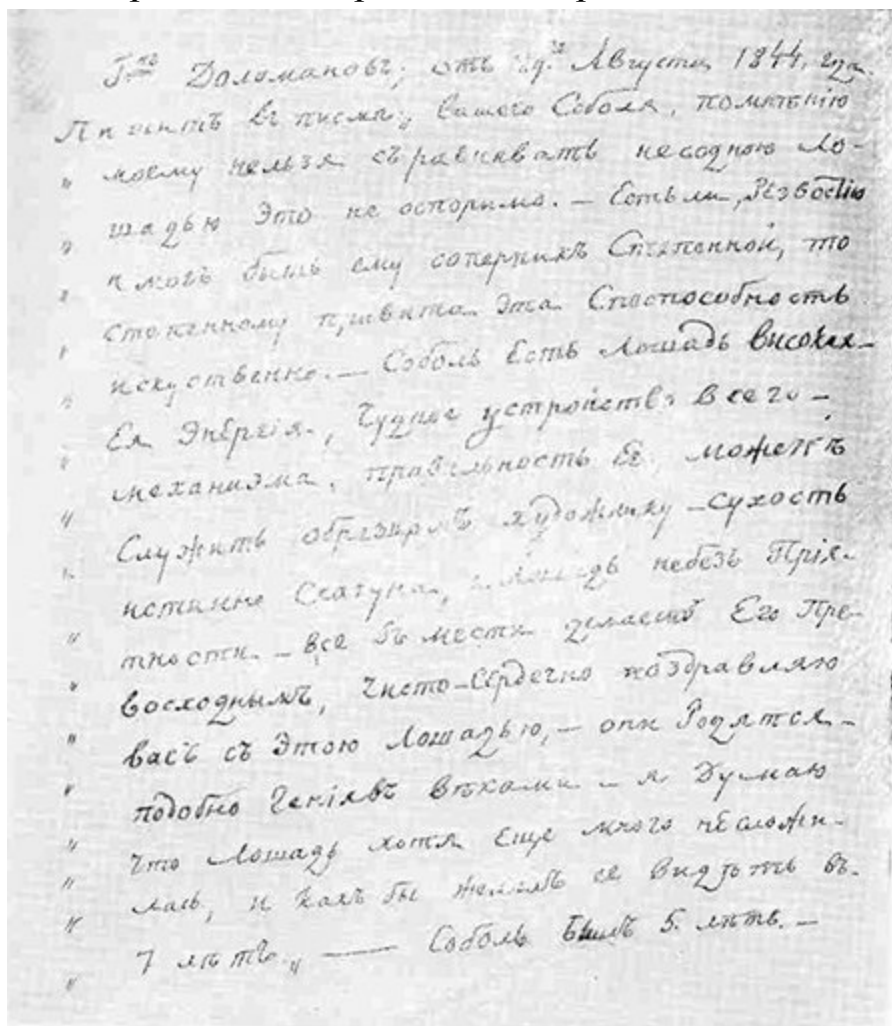 Г.нъ Доломановъ; отъ 29.го Августа 1844. года.
Пишетъ въ письмѣ „ вашего Соболя, помнѣнію
„ моему нельзя съравнивать несодною Ло-
„ шадью Это не оспоримо. — Естьли, Рѣзвостію
„ и могъ быть ему соперникъ Степенной, то
„ степенному привита эта Спостособность
„ искуственно. — Соболь Есть Лошадь высокая —
„ Ея Энергія, Чудное устройство всего —
„ механизма, правильность Ея, можетъ
„ Служить образцомъ художнику — сухость
„ истинно Скакуна, Лошадь небезъ Прія-
„ тности — все вмѣстѣ делаетъ Его Пре-
„ восходнымъ, Чисто-Сердечно поздравляю
„ васъ съ Этою Лошадью, — они Родятся —
„ подобно Геніявъ вѣками — я Думаю
„ Что Лошадь хотя Еще много несложи-
„ лась, и какъ бы желалъ ее видѣть въ
„ 7 лѣтъ „ — Соболь Былъ 5. лѣтъ. —